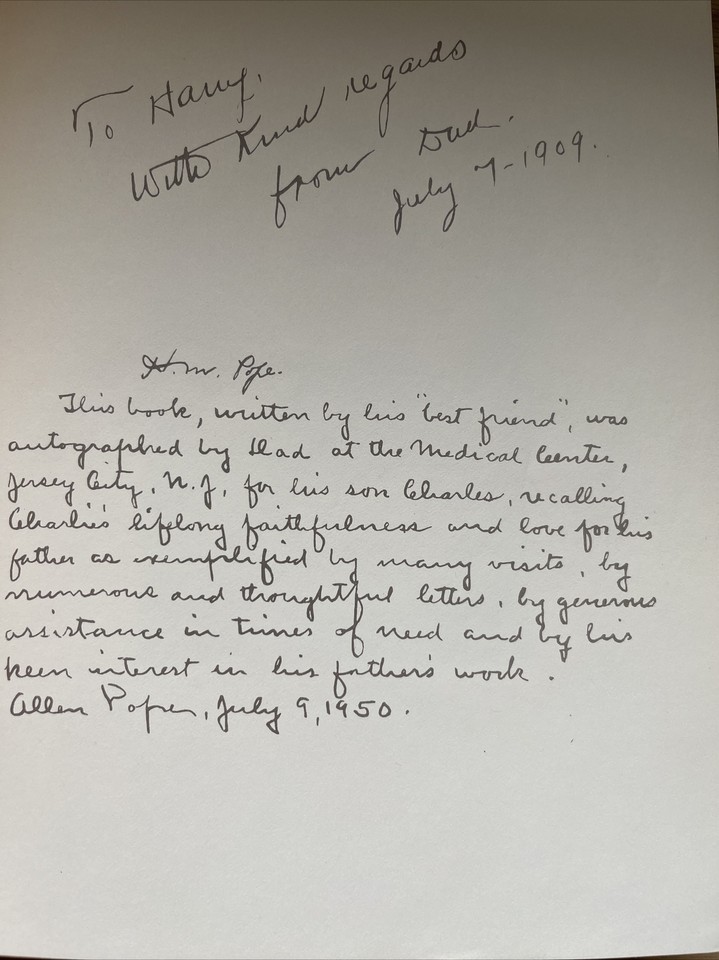 To Harry,
With Kind regards
from Dad.
July 7-1909.
H. W. Pope.
This book, written by his "best friend", was
autographed by Dad at the Medical Center,
Jersey City, N.J., for his son Charles, recalling
Charlie's lifelong faithfulness and love for his
father as exemplified by many visits, by
numerous and thoughtful letters, by generous
assistance in times of need and by his
keen interest in his father's work.
Allen Pope, July 9, 1950.